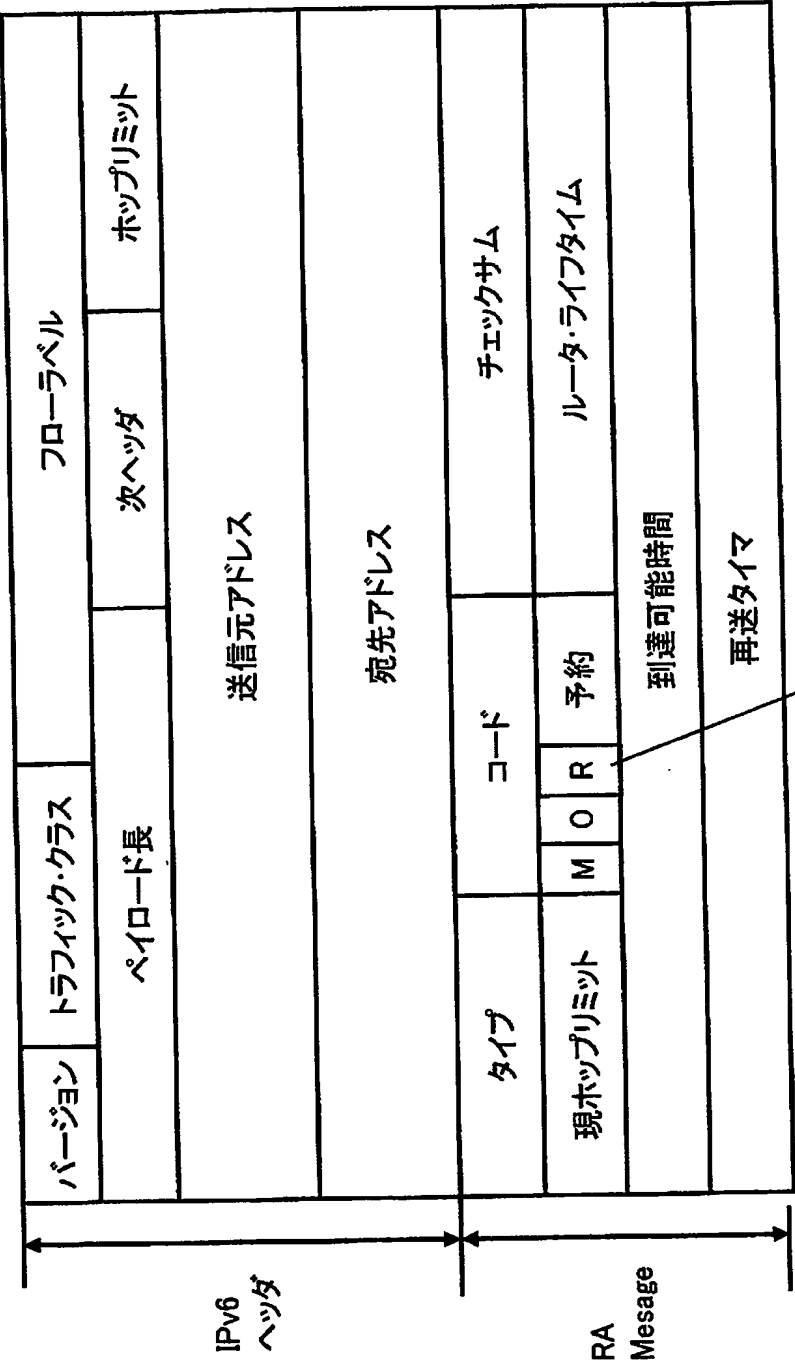 IPv6
ヘッダ
バージョン
トラフィック・クラス
フローラベル
ペイロード長
次ヘッダ
ホップリミット
送信元アドレス
宛先アドレス
RA
Mesage
タイプ
コード
チェックサム
現ホップリミット
M
O
R
予約
ルータ・ライフタイム
到達可能時間
再送タイマ